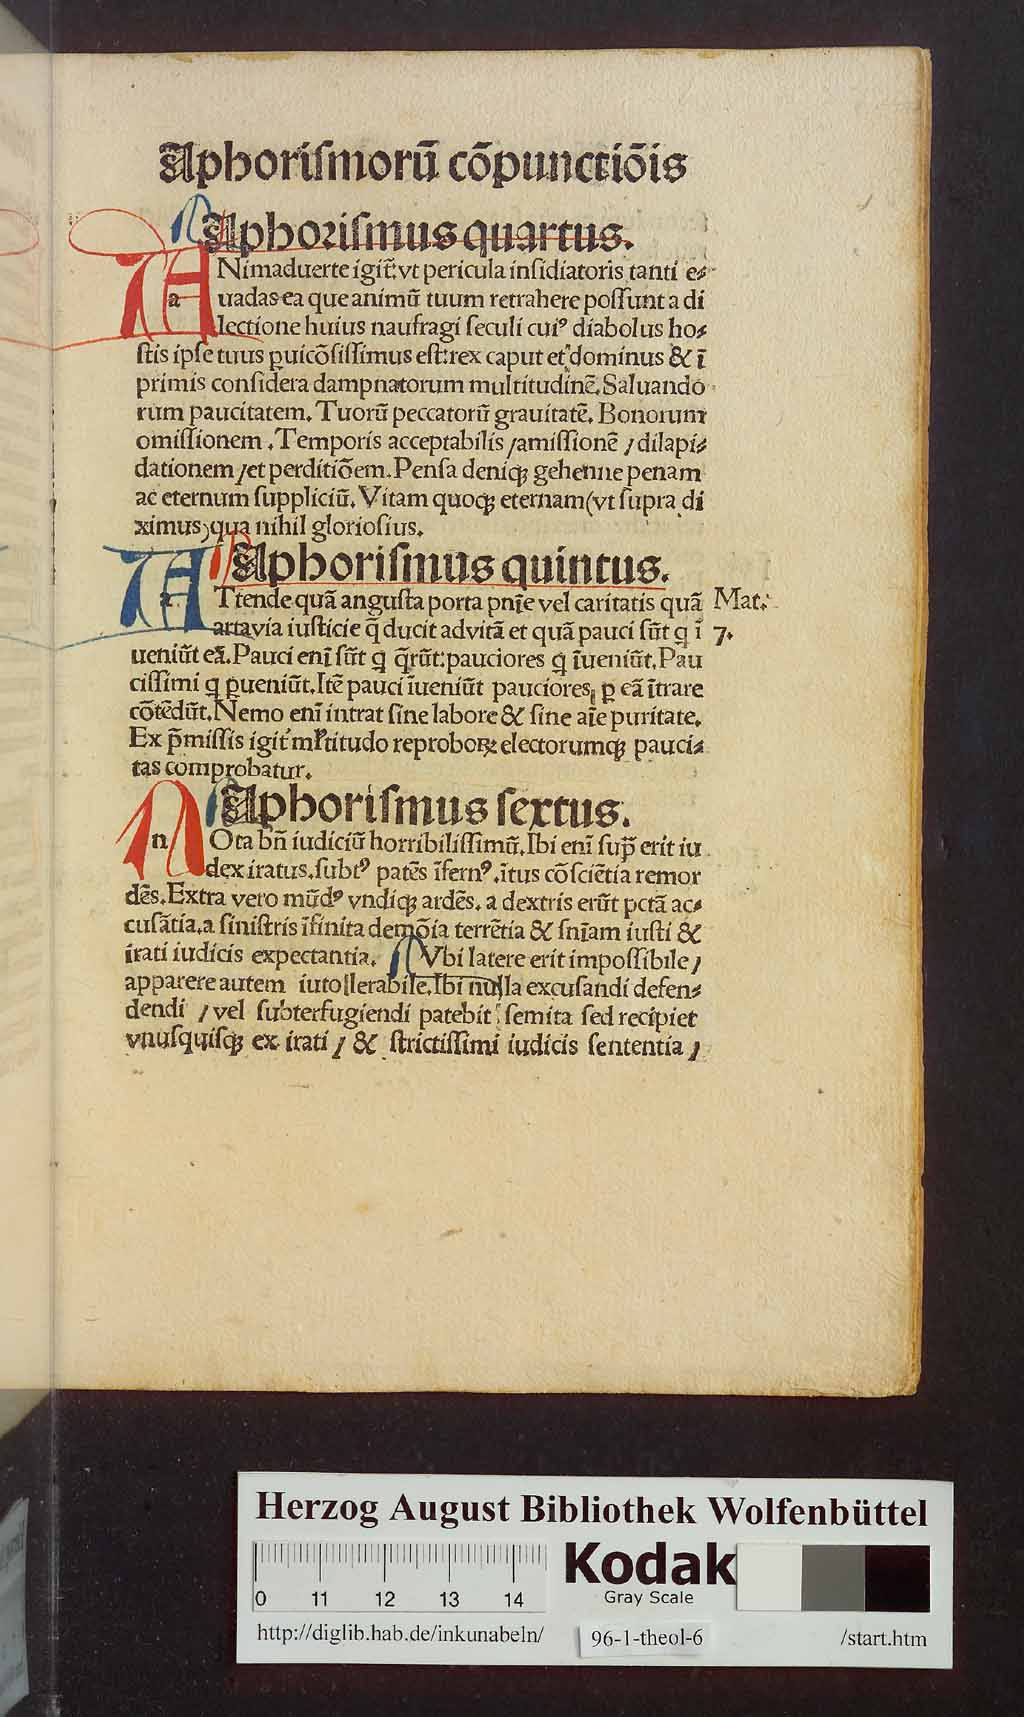 Aphoriſmorū cōpunctiōis
Aphoriſmus quartus.
ANimaduerte igit̄ vt pericula inſidiatoris tanti e⸗
uadas ea que animū tuum retrahere poſſunt a di
lectione huius naufragi ſeculi cuiꝰ diabolus ho⸗
ſtis ipſe tuus ꝑuicōſiſſimus eſt: rex caput et dominus & ī
primis conſidera dampnatorum multitudinē. Saluando
rum paucitatem. Tuorū peccatorū grauitatē. Bonorum
omiſſionem. Temporis acceptabilis / amiſſionē / dilapi⸗
dationem / et perditiōem. Penſa deniqꝫ gehenne penam
ac eternum ſuppliciū. Vitam quoqꝫ eternam (vt ſupra di
ximus) qua nihil glorioſius.
Aphoriſmus quintus.
ATtende quā anguſta porta pnīe vel caritatis quā Mat.
arta via iuſticie q̄ ducit ad vitā et quā pauci ſūt q ī 7.
ueniūt eā. Pauci enī ſūt q q̄rūt: pauciores q īueniūt. Pau
ciſſimi q ꝑueniūt. Itē pauci īueniūt pauciores ꝑ eā ītrare
cōtēdūt. Nemo enī intrat ſine labore & ſine aīe puritate.
Ex p̄miſſis igit̄ ml̕titudo reproboꝝ electorumqꝫ pauci⸗
tas comprobatur.
Aphoriſmus ſextus.
NOta bn̄ iudiciū horribiliſſimū. Ibi enī ſup̄ erit iu
dex iratus. ſubtꝰ patēs īfernꝰ. ītus cōſciētia remor
dēs. Extra vero mūdꝰ vndiqꝫ ardēs. a dextris erūt pctā ac⸗
cuſātia. a ſiniſtris īfinita demōia terrētia & ſnīam iuſti &
irati iudicis expectantia. Vbi latere erit impoſſibile /
apparere autem iutollerabile. Ibi nulla excuſandi defen⸗
dendi / vel ſubterfugiendi patebit ſemita ſed recipiet
vnuſquiſqꝫ ex irati / & ſtrictiſſimi iudicis ſententia /
Herzog August Bibliothek Wolfenbüttel
0 11 12 13 14
Kodak
Gray Scale
http://diglib.hab.de/inkunabeln/ 96-1-theol-6 /start.htm